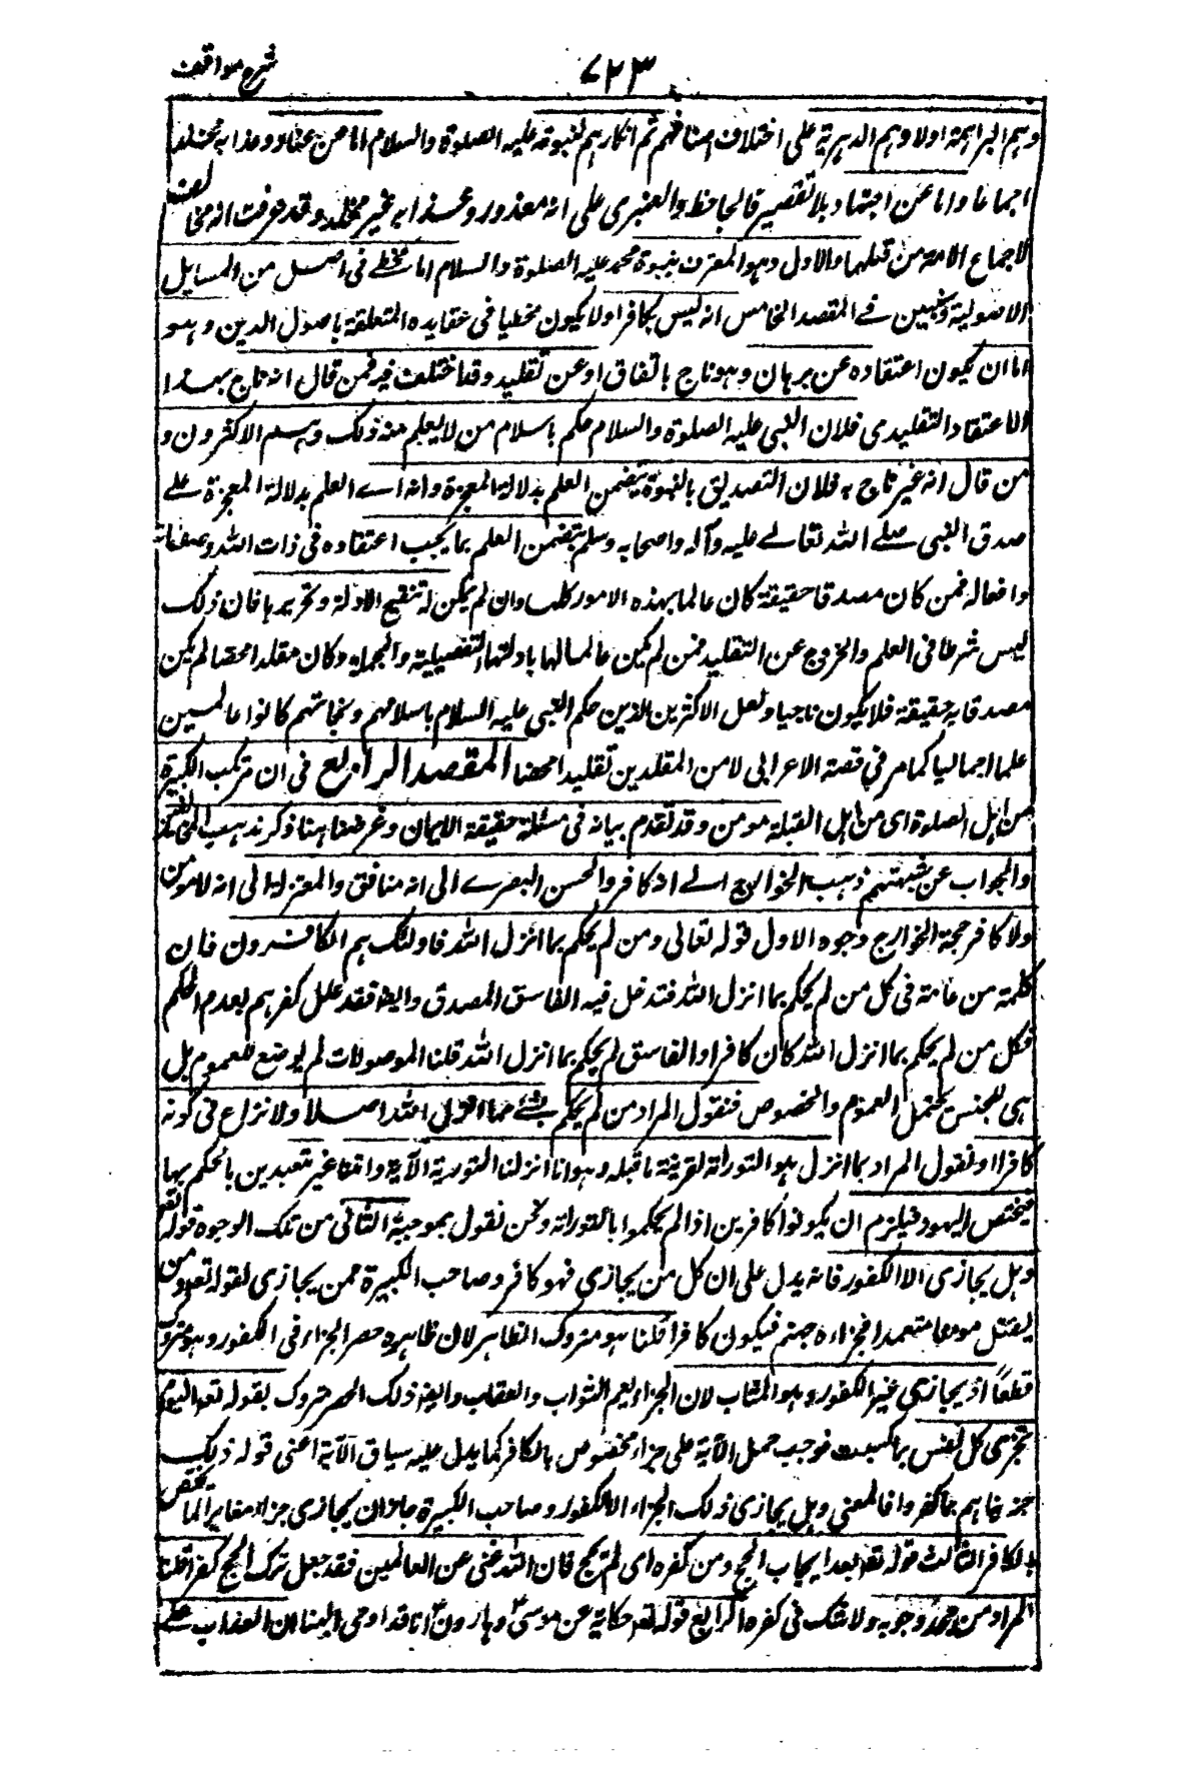 شرح مواقف
۷۲۳
وہم البراہمۃ اولا وہم الدہریۃ علی اختلاف اصنافہم ثم انکارہم لنبوتہ علیہ الصلوۃ والسلام اما عن عناد وعذابہ مخلد
اجماعا واما عن اجتہاد بلا تقصیر فالجاحظ والعنبری علی انہ معذور وعذابہ غیر مخلد وقد عرفت انہ مخالف
لاجماع الامۃ من قبلہما والاول وہو المعترف بنبوۃ محمد علیہ الصلوۃ والسلام اما مخطے فی اصل من المسایل
الاصولیۃ وسنبین فے المقصد الخامس انہ لیس بکافر اولا یکون مخطیا فی عقایدہ المتعلقۃ باصول الدین وہو
اما ان یکون اعتقادہ عن برہان وہو ناج باتفاق او عن تقلید وقد اختلف فیہ فمن قال انہ ناج بہذا
الاعتقاد التقلیدی فلان النبی علیہ الصلوۃ والسلام حکم باسلام من لا یعلم منہ ذلک وہم الاکثرون و
من قال انہ غیر ناج بہ فلان التصدیق بالنبوۃ یتضمن العلم بدلالۃ المعجزۃ وانہ اے العلم بدلالۃ المعجزۃ علے
صدق النبی صلے اللہ تعالے علیہ وآلہ واصحابہ وسلم یتضمن العلم بما یجب اعتقادہ فی ذات اللہ وصفاتہ
وافعالہ فمن کان مصدقا حقیقۃ کان عالما بہذہ الامور کلہا وان لم یکن لہ تنقیح الادلۃ وتحریرہا فان ذلک
لیس شرطا فی العلم والخروج عن التقلید فمن لم یکن عالما لہا بادلتہا التفصیلیۃ والجملۃ وکان مقلدا محضا لم یکن
مصدقا بہ حقیقۃ فلا یکون ناجیا ولعل الاکثرین الذین حکم النبی علیہ السلام باسلامہم ونجاتہم کانوا عالمین
علما اجمالیا کما مر فی قصۃ الاعرابی لا من المقلدین تقلیدا محضا المقصد الرابع فی ان مرتکب الکبیرۃ
من اہل الصلوۃ ای من اہل القبلۃ مومن وقد تقدم بیانہ فی مسئلۃ حقیقۃ الایمان وغرضنا ہہنا ذکر مذہب المخالفین
والجواب عن شبہتہم ذہب الخوارج الے انہ کافر والحسن البصرے الی انہ منافق والمعتزلۃ الی انہ لا مومن
ولا کافر حجۃ الخوارج وجوہ الاول قولہ تعالی ومن لم یحکم بما انزل اللہ فاولئک ہم الکافرون فان
کلمۃ من عامۃ فی کل من لم یحکم بما انزل اللہ فتدخل فیہ الفاسق المصدق وایضا فقد علل کفرہم بعدم الحکم
فکل من لم یحکم بما انزل اللہ کان کافرا والفاسق لم یحکم بما انزل اللہ قلنا الموصولات لم یوضع للعموم بل
ہی للجنس یحتمل العموم والخصوص فنقول المراد من لم یحکم بشئ مما انزل اللہ اصلا ولا نزاع فی کونہ
کافرا او نقول المراد بما انزل ہو التوراۃ لقرینۃ ما قبلہ وہو انا انزلنا التوریۃ الآیۃ وامتنا غیر متعبدین بالحکم بہا
فیختص الیہود فیلزم ان یکونوا کافرین اذا لم یحکموا بالتوراۃ ونحن نقول بموجبہ الثانی من تلک الوجوہ قولہ تعہ
وہل یجازی الا الکفور فانہ یدل علی ان کل من یجازی فہو کافر وصاحب الکبیرۃ ممن یجازی لقولہ تعہ ومن
یقتل مومنا متعمدا فجزاءہ جہنم فیکون کافرا قلنا ہو متروک الظاہر لان ظاہرہ حصر الجزاء فی الکفور وہو متروک
قطعاً اذ یجازی غیر الکفور وہو المثاب لان الجزاء یعم الثواب والعقاب وایضا ذلک الحصر متروک بقولہ تعہ الیوم
تجزی کل نفس بما کسبت فوجب حمل الآیۃ علی جزاء مخصوص بالکافر کما یدل علیہ سیاق الآیۃ اعنی قولہ ذلک
جزیناہم بما کفروا فالمعنی وہل یجازی ذلک الجزاء الا الکفور وصاحب الکبیرۃ جاز ان یجازی جزاء مغایرا لما یختص
بالکافر الثالث قولہ تعہ بعد ایجاب الحج ومن کفر ای لم یحج فان اللہ غنی عن العالمین فقد جعل ترک الحج کفرا قلنا
المراد من جحد وجوبہ ولا شک فی کفرہ الرابع قولہ تعہ حکایۃ عن موسی وہارون انا قد اوحی الینا ان العذاب علے